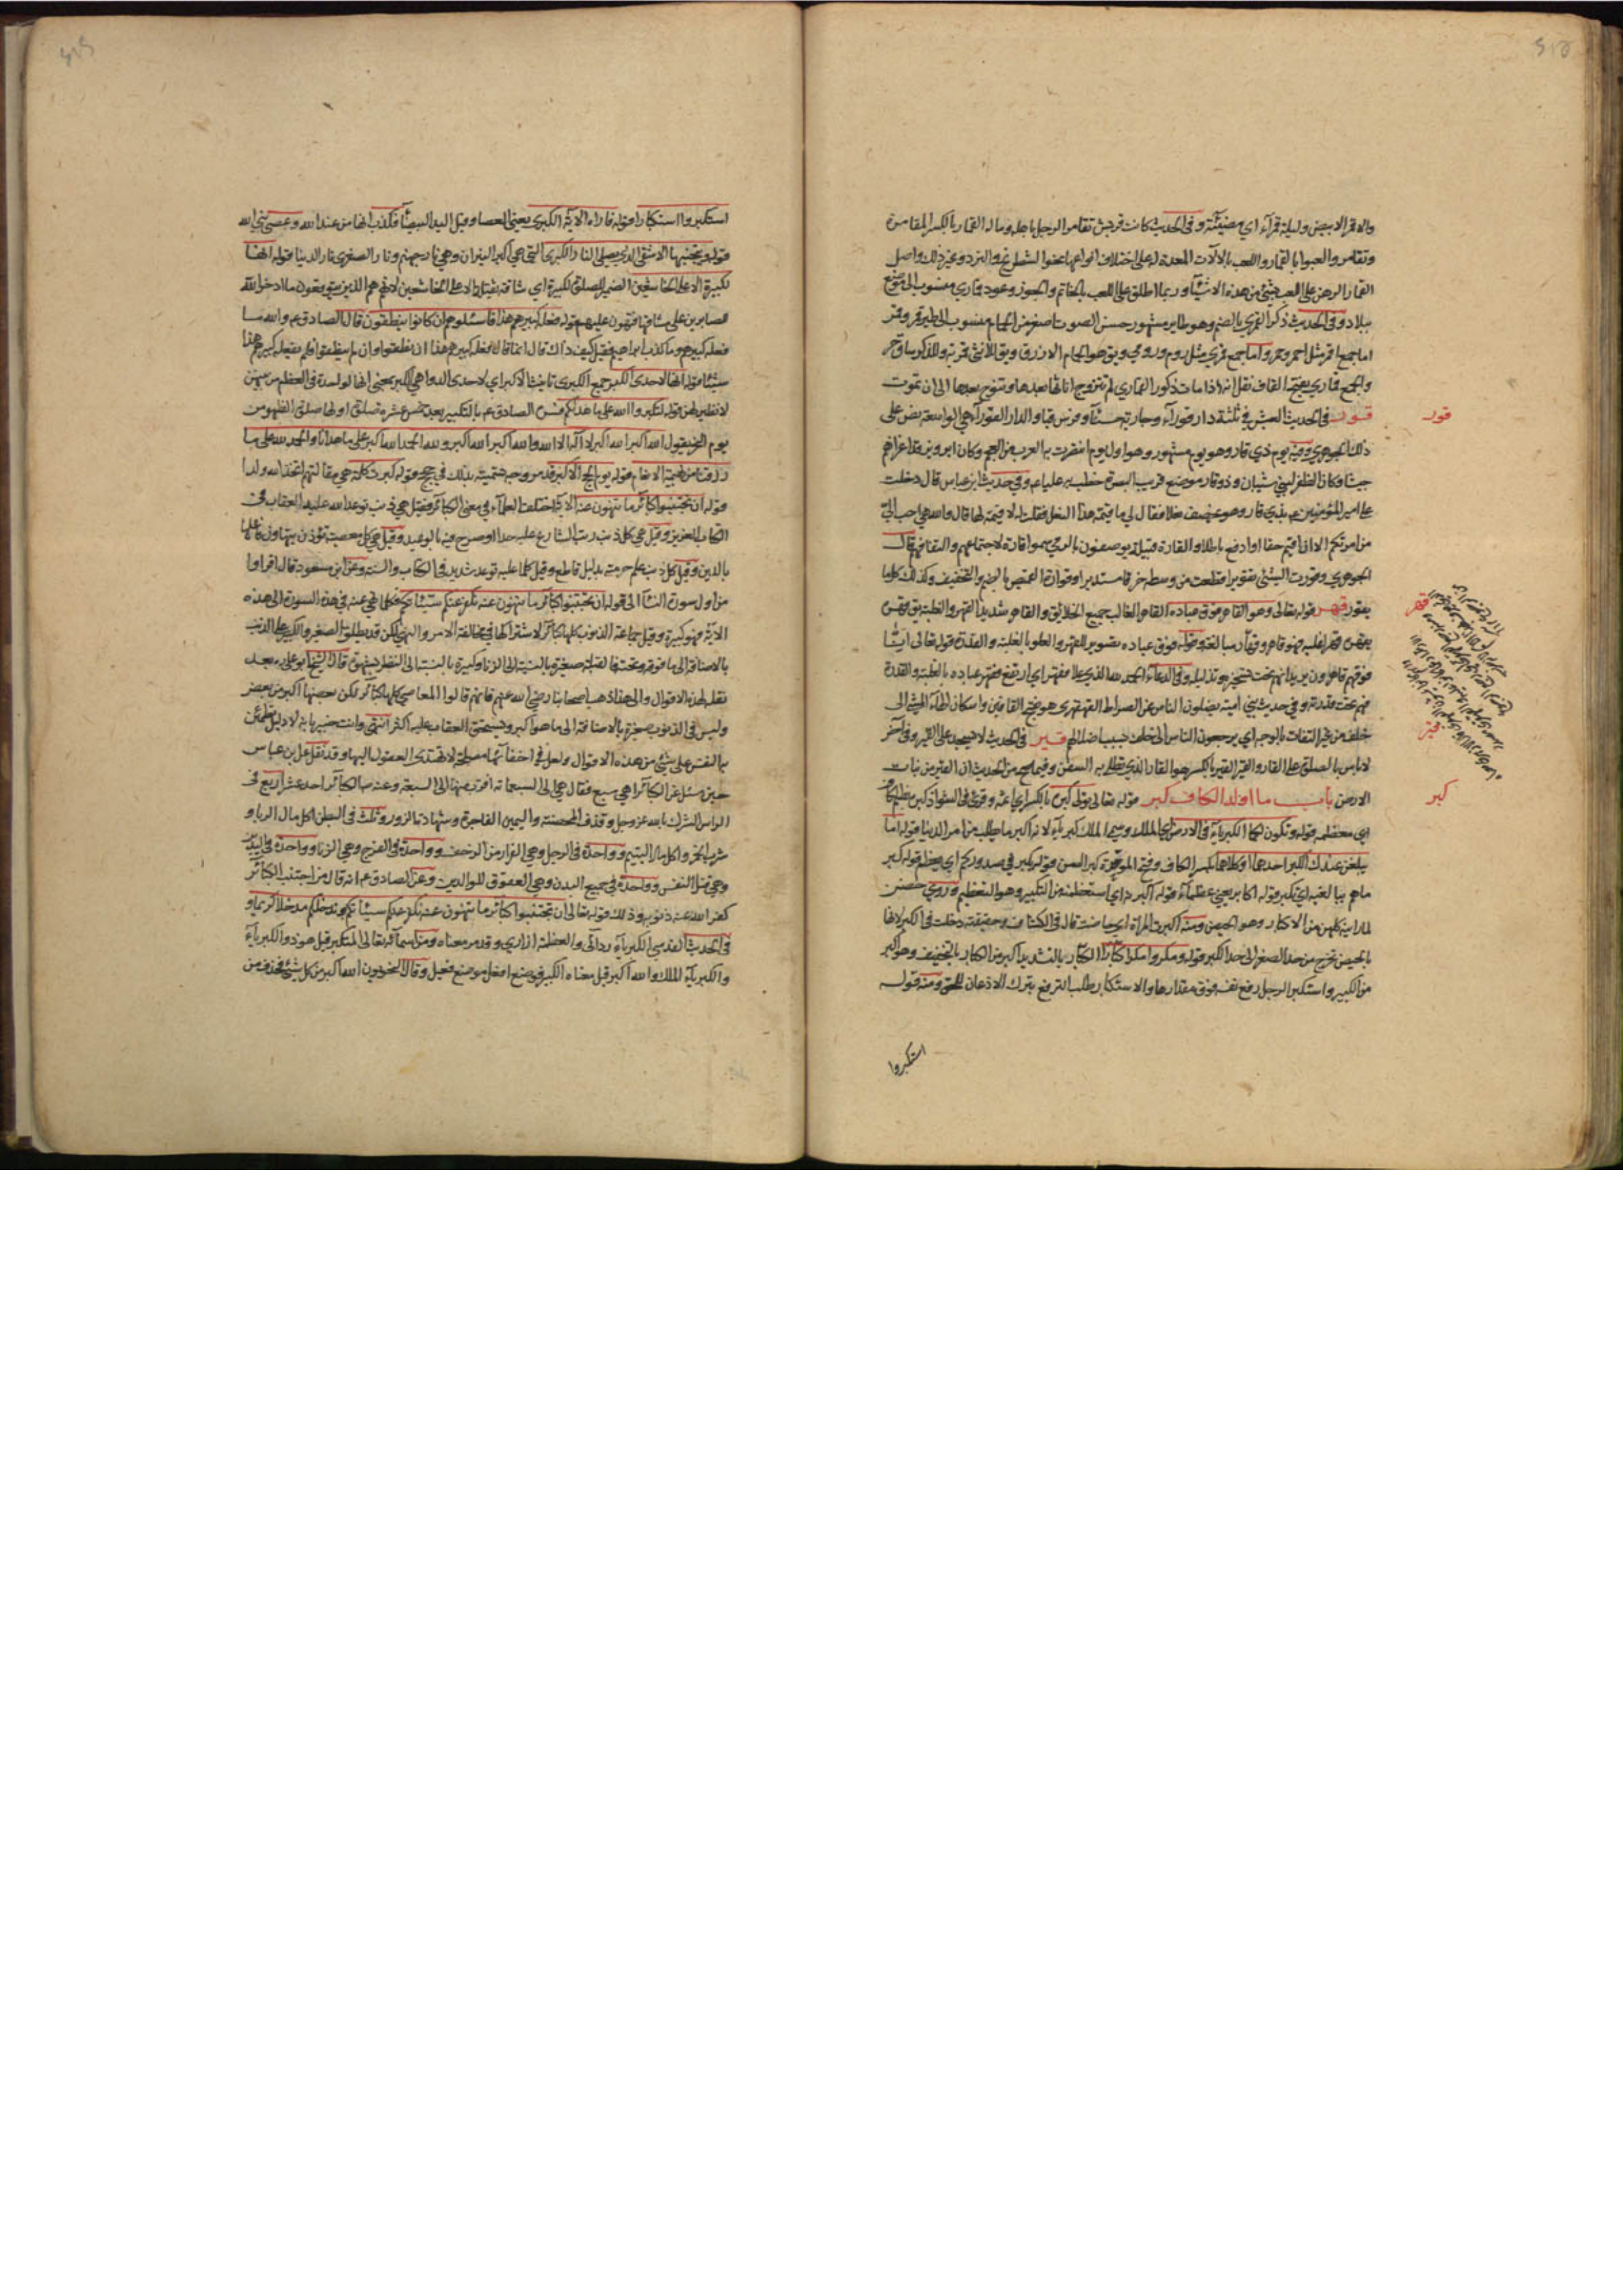 والاقمر الابيض وليلة قمرآء اي مضيئة وفى الحديث كانت قريش تقامر الرجل باهله وماله القمار بالكسر المقامرة
وتقامروا لعبوا بالقمار واللعب بالآلات المعدة له على اختلاف انواعها نحو الشطرنج والنرد وغير ذلك واصل
القمار الرهن على اللعب بشئ من هذه الاشيآء وربما اطلق على اللعب بالخاتم والجوز وعود قماري منسوب الى موضع
ببلاد وفى الحديث ذكر القمري بالضم وهو طاير مشهور حسن الصوت اصغر من الحمام منسوب الى طير قمر وقمر
اما جمع اقمر مثل احمر وحمر واما جمع قمري مثل روم ورومي ويق هو الحمام الازرق ويق للانثى قمرية وللذكر ساق حر
والجمع قماري بفتح القاف نقل انه اذا مات ذكور القماري لم تتزوج اناثها بعدها وتنوح بعدها الى ان تموت
قور فى الحديث العيش في ثلثة دار قورآء وجارية حسنآء وفرس قبا والدار القورآء هي الواسعة نص على
ذلك الجوهري وفيه يوم ذي قار وهو يوم مشهور وهو اول يوم انتصرت به العرب من العجم وكان ابرويز قد اغزاهم
جيشا وكان الظفر لبني شيبان وذو قار موضع قريب البصرة خطب به علي عم وفي حديث ابن عباس قال دخلت
على امير المؤمنين عم بذي قار وهو يخصف نعلا فقال لي ما قيمة هذا النعل فقلت له لا قيمة لها قال والله هي احب اليّ
من امرتكم الا ان اقيم حقا او ادفع باطلا والقارة قبيلة يوصفون بالرمي سموا قارة لاجتماعهم والتفافهم قال
الجوهري وقورت الشئ تقويرا قطعت من وسطه خرقا مستديرا وقوارة القميص بالضم والتخفيف وكذلك كل ما
يقور قهر قوله تعالى وهو القاهر فوق عباده القاهر الغالب جميع الخلائق والقاهر شديد القهر والغلبة يق قهره
يقهره قهرا غلبه فهو قاهر وقهار مبالغة وقوله فوق عباده تصوير للقهر والعلو بالغلبة والقدرة قوله تعالى انّا
فوقهم قاهرون يريد انهم تحت تسخيره وتذليله وفى الدعآء الحمد لله الذي علا فقهر اي ارتفع فقهر عباده بالغلبة والقدرة
فهم تحت قدرته وفي حديث بني امية يضلون الناس عن الصراط القهقري هو بفتح القافين واسكان الهاء المشي الى
خلف من غير التفات بالوجه اي يرجعون الناس الى خلف بسبب اضلالهم قير فى الحديث لا يسجد على القير وفى آخر
لا باس بالصلوة على القار والقير القير بالكسر هو القار الذي تطلى به السفن وفيما صح من الحديث ان القير من نبات
الارض باب ما اوله الكاف كبر قوله تعالى تولى كبره بالكسر اي اثمه وقرئ فى الشواذ كبره بضم الكاف
اي معظمه قوله وتكون لكما الكبريآء فى الارض اي الملك وسمي الملك كبريآء لانه اكبر ما يطلب من امر الدنيا قوله اما
يبلغن عندك الكبر احدهما او كلاهما بكسر الكاف وفتح الموحدة كبر السن وقوله يكبر في صدوركم اي يعظم قوله كبر
ما هم ببالغيه اي تكبر قوله اكابر يعني عظمآء قوله اكبرنه اي استعظمنه من التكبير وهو التعظيم وروي حضن
لما راينه كلهن من الاكبار وهو الحيض ومنه اكبرت المرأة اي حاضت قال فى الكشاف وحقيقته دخلت فى الكبر لانها
بالحيض تخرج من حد الصغر الى حد الكبر قوله ومكروا مكرا كبّارا الكبّار بالتشديد اكبر من الكبار بالتخفيف وهو اكبر
من الكبير واستكبر الرجل رفع نفسه فوق مقدارها والاستكبار طلب الترفع بترك الاذعان للحق ومنه قوله
استكبروا
قور
قهر
قير
كبر
استكبروا استكبارا وقوله فاراه الآية الكبرى يعني العصا وقيل اليد البيضآء فكذب انها من عند الله وعصى نبي الله
قوله ويتجنبها الاشقى الذي يصلى النار الكبرى التي هي اكبر النيران وهي نار جهنم ونار الصغرى نار الدنيا قوله انها
لكبيرة الا على الخاشعين الضمير للصلوة لكبيرة اي شاقة ثقيلة الا على الخاشعين لانهم هم الذين يتوقعون ما ادخر الله
للصابرين على مشاقها فتهون عليهم قوله فعله كبيرهم هذا فاسئلوهم ان كانوا ينطقون قال الصادق عم والله ما
فعله كبيرهم وما كذب ابراهيم فقيل كيف ذاك قال انما قال فعله كبيرهم هذا ان نطقوا وان لم ينطقوا فلم يفعله كبيرهم هذا
شيئا قوله انها لاحدى الكبر جمع الكبرى تانيث الاكبر اي لاحدى الدواهي الكبر بمعنى انها لواحدة فى العظم من بينهن
لا نظير لهن قوله لتكبروا الله على ما هداكم فسره الصادق عم بالتكبير بعد خمس عشرة صلوة اولها صلوة الظهر من
يوم النحر يقول الله اكبر الله اكبر لا اله الا الله والله اكبر الله اكبر ولله الحمد الله اكبر على ما هدانا والحمد لله على ما
رزقنا من بهيمة الانعام قوله يوم الحج الاكبر قد مر وجه تسميته بذلك في حجج وقوله كبرت كلمة هي مقالتهم اتخذ الله ولدا
قوله ان تجتنبوا كبائر ما تنهون عنه الآية اختلف العلمآء في معنى الكبائر فقيل هي ذنب توعد الله عليه العقاب فى
الكتاب العزيز وقيل هي كل ذنب رتب الشارع عليه حدا او صرح فيه بالوعيد وقيل هي كل معصية تؤذن بتهاون فاعلها
بالدين وقيل كل ذنب علم حرمته بدليل قاطع وقيل كلما عليه توعد شديد فى الكتاب والسنة وعن ابن مسعود قال اقراوا
من اول سورة النسآء الى قوله ان تجتنبوا كبائر ما تنهون عنه نكفر عنكم سيئاتكم فكلما نهي عنه في هذه السورة الى هذه
الآية فهو كبيرة وقيل جماعة الذنوب كلها كبائر لاشتراكها في مخالفة الامر والنهي لكن قد يطلق الصغير والكبير على الذنب
بالاضافة الى ما فوقه وتحته فالقبلة صغيرة بالنسبة الى الزنا وكبيرة بالنسبة الى النظر بشهوة قال الشيخ ابو علي ره بعد
نقله لهذه الاقوال والى هذا ذهب اصحابنا رضي الله عنهم فانهم قالوا المعاصي كلها كبائر لكن بعضها اكبر من بعض
وليس فى الذنوب صغيرة بالاضافة الى ما هو اكبر ويستحق العقاب عليه اكثر انتهى وانت خبير بانه لا دليل تطمئن
به النفس على شئ من هذه الاقوال ولعل في اخفائها مصلحة لا تهتدي العقول اليها وقد نقل عن ابن عباس
حين سئل عن الكبائر اهي سبع فقال هي الى السبعمائة اقرب منها الى السبعة وعنه ص الكبائر احد عشر اربع فى
الراس الشرك بالله عز وجل وقذف المحصنة واليمين الفاجرة وشهادة الزور وثلث فى البطن اكل مال الربا و
شرب الخمر واكل مال اليتيم وواحدة فى الرجل وهي الفرار من الزحف وواحدة فى الفرج وهي الزنا وواحدة فى اليدين
وهي قتل النفس وواحدة في جميع البدن وهي العقوق للوالدين وعن الصادق عم انه قال من اجتنب الكبائر
كفر الله عنه ذنوبه وذلك قوله تعالى ان تجتنبوا كبائر ما تنهون عنه نكفر عنكم سيئاتكم وندخلكم مدخلا كريما و
فى الحديث القدسي الكبريآء ردائي والعظمة ازاري وقد مر معناه ومن اسمآئه تعالى المتكبر قيل هو ذو الكبريآء
والكبريآء الملك والله اكبر قيل معناه الكبير فوضع افعل موضع فعيل وقال النحويون الله اكبر من كل شئ فحذف من